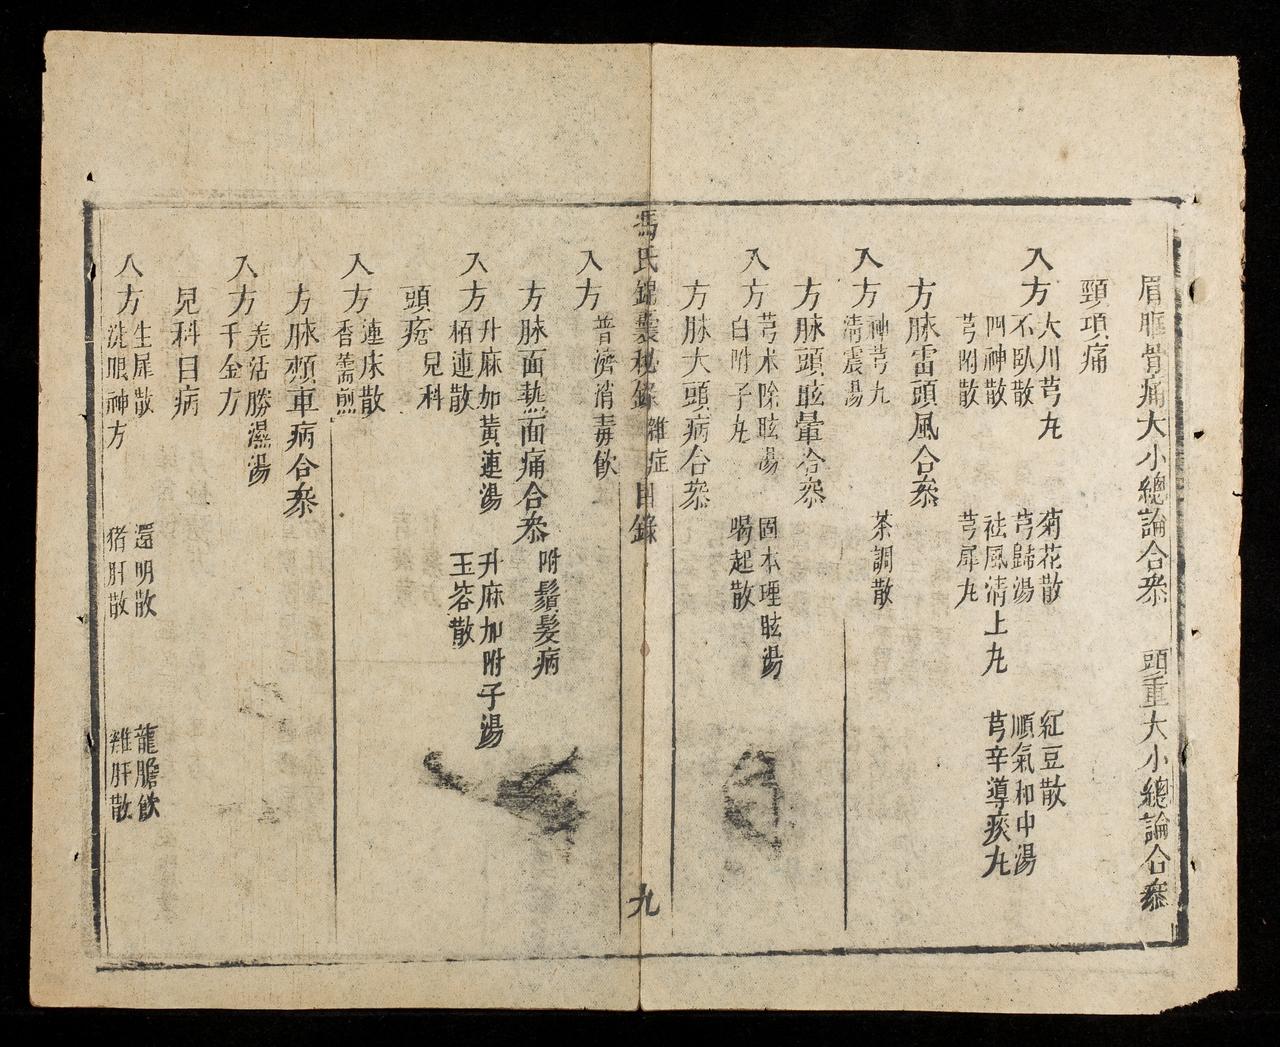 眉眶骨痛大小總論合叅　頭重大小總論合叅
頸項痛
入方
大川芎丸　菊花散　紅豆散
不臥散　芎歸湯　順氣和中湯
四神散　祛風清上丸　芎辛導痰丸
芎附散　芎犀丸
方脉雷頭風合叅
入方
神芎丸　茶調散
清震湯
方脉頭眩暈合叅
入方
芎朮除眩湯　固本理眩湯
白附子丸　暘起散
方脉大頭病合叅
馮氏錦囊秘錄　雜症　目錄　九
入方
普濟消毒飲
方脉面熱面痛合叅　附鬚髮病
入方
升麻加黃連湯　升麻加附子湯
栢連散　玉容散
頭瘡　兒科
入方
連床散
香薷煎
方脉頰車病合叅
入方
羌活勝濕湯
千金方
兒科目病
入方
生犀散　還明散　龍膽飲
洗眼神方　猪肝散　雞肝散